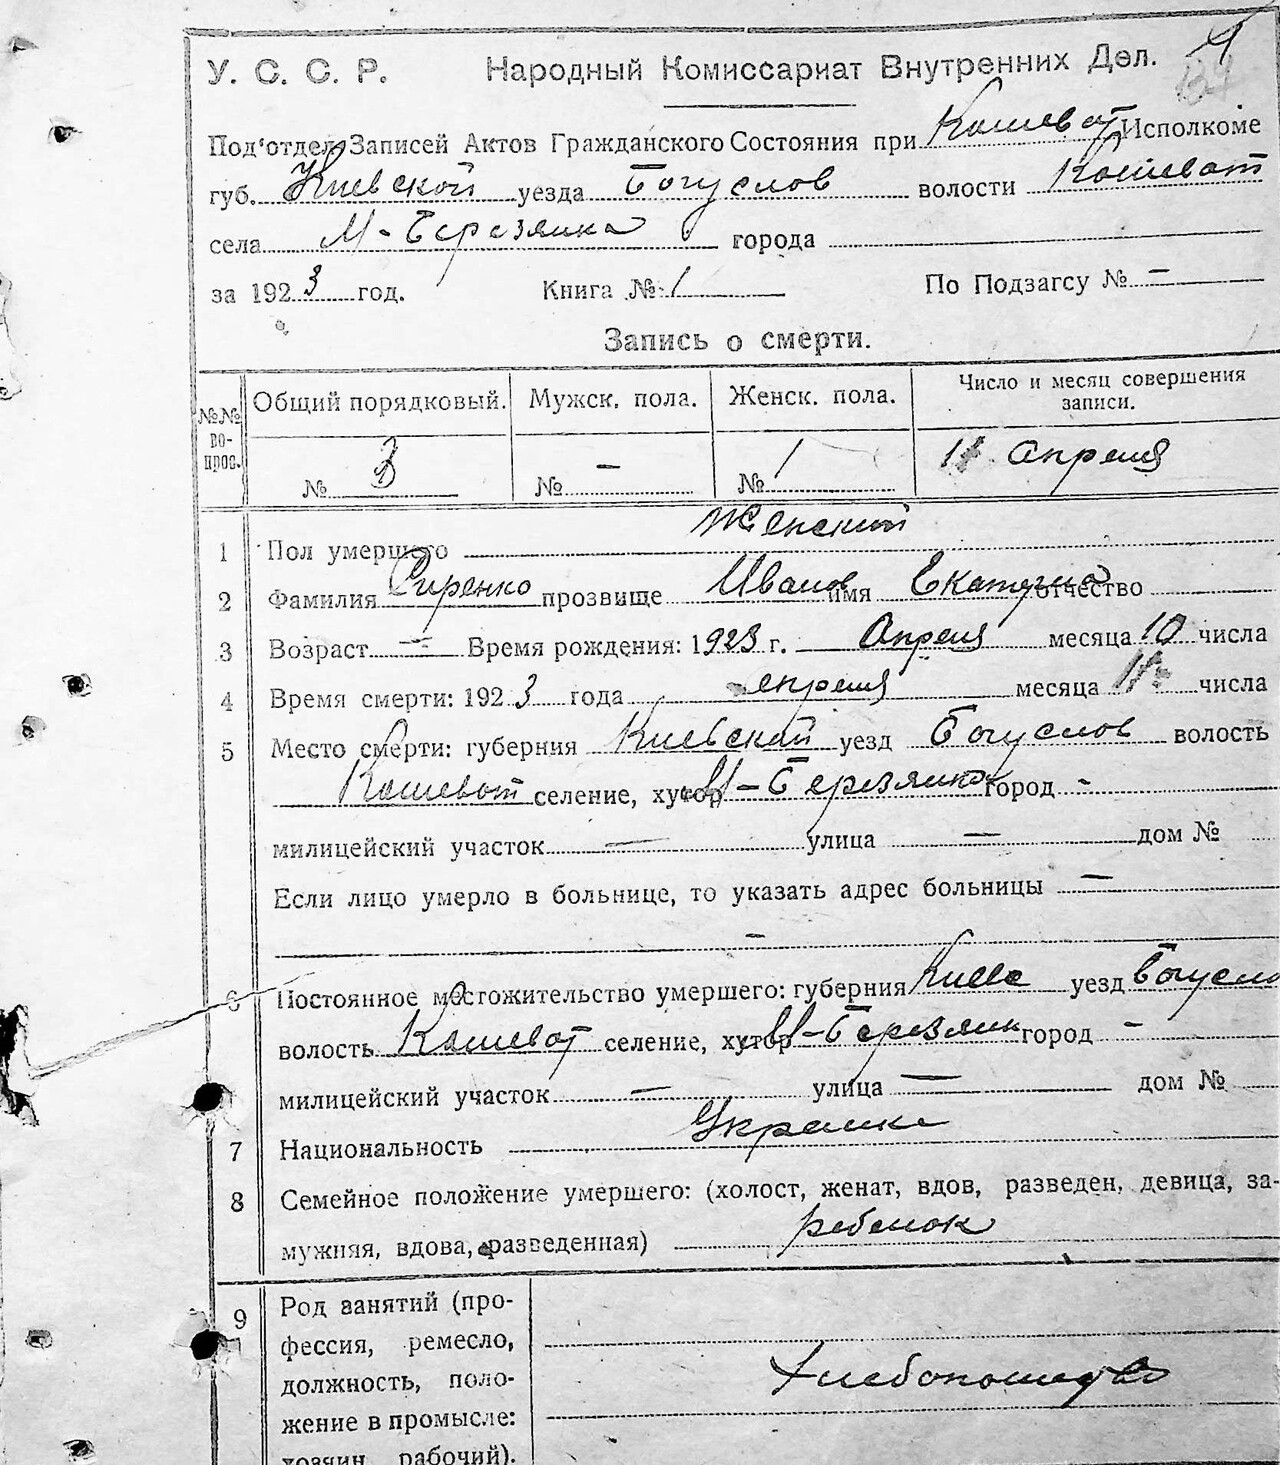 У. С. С. Р. Народный Комиссариат Внутренних Дел.
Под'отдел Записей Актов Гражданского Состояния при Кошеват Исполкоме
губ. Киевской уезда Богуслов волости Кошеват
села М-Березянка города
за 1923 год. Книга № 1 По Подзагсу № —
Запись о смерти.
№№ во-прос. Общий порядковый. Мужск. пола. Женск. пола. Число и месяц совершения записи.
№ 3 № — № 1 Апреля
1 Пол умершего Женский
2 Фамилия Сиренко прозвище Иванов имя Екатерина отчество
3 Возраст — Время рождения: 1923 г. Апреля месяца 10 числа
4 Время смерти: 1923 года апреля месяца числа
5 Место смерти: губерния Киевской уезд Богуслов волость
Кошеват селение, хутор М-Березянка город -
милицейский участок — улица — дом №
Если лицо умерло в больнице, то указать адрес больницы —
—
6 Постоянное местожительство умершего: губерния Киевс уезд Богусло
волость Кошеват селение, хутор М-Березянк город —
милицейский участок — улица — дом №
7 Национальность
8 Семейное положение умершего: (холост, женат, вдов, разведен, девица, за-
мужняя, вдова, разведенная) ребенок
9 Род занятий (про-
фессия, ремесло,
должность, поло-
жение в промысле:
хозяин, рабочий).
Хлебопашество